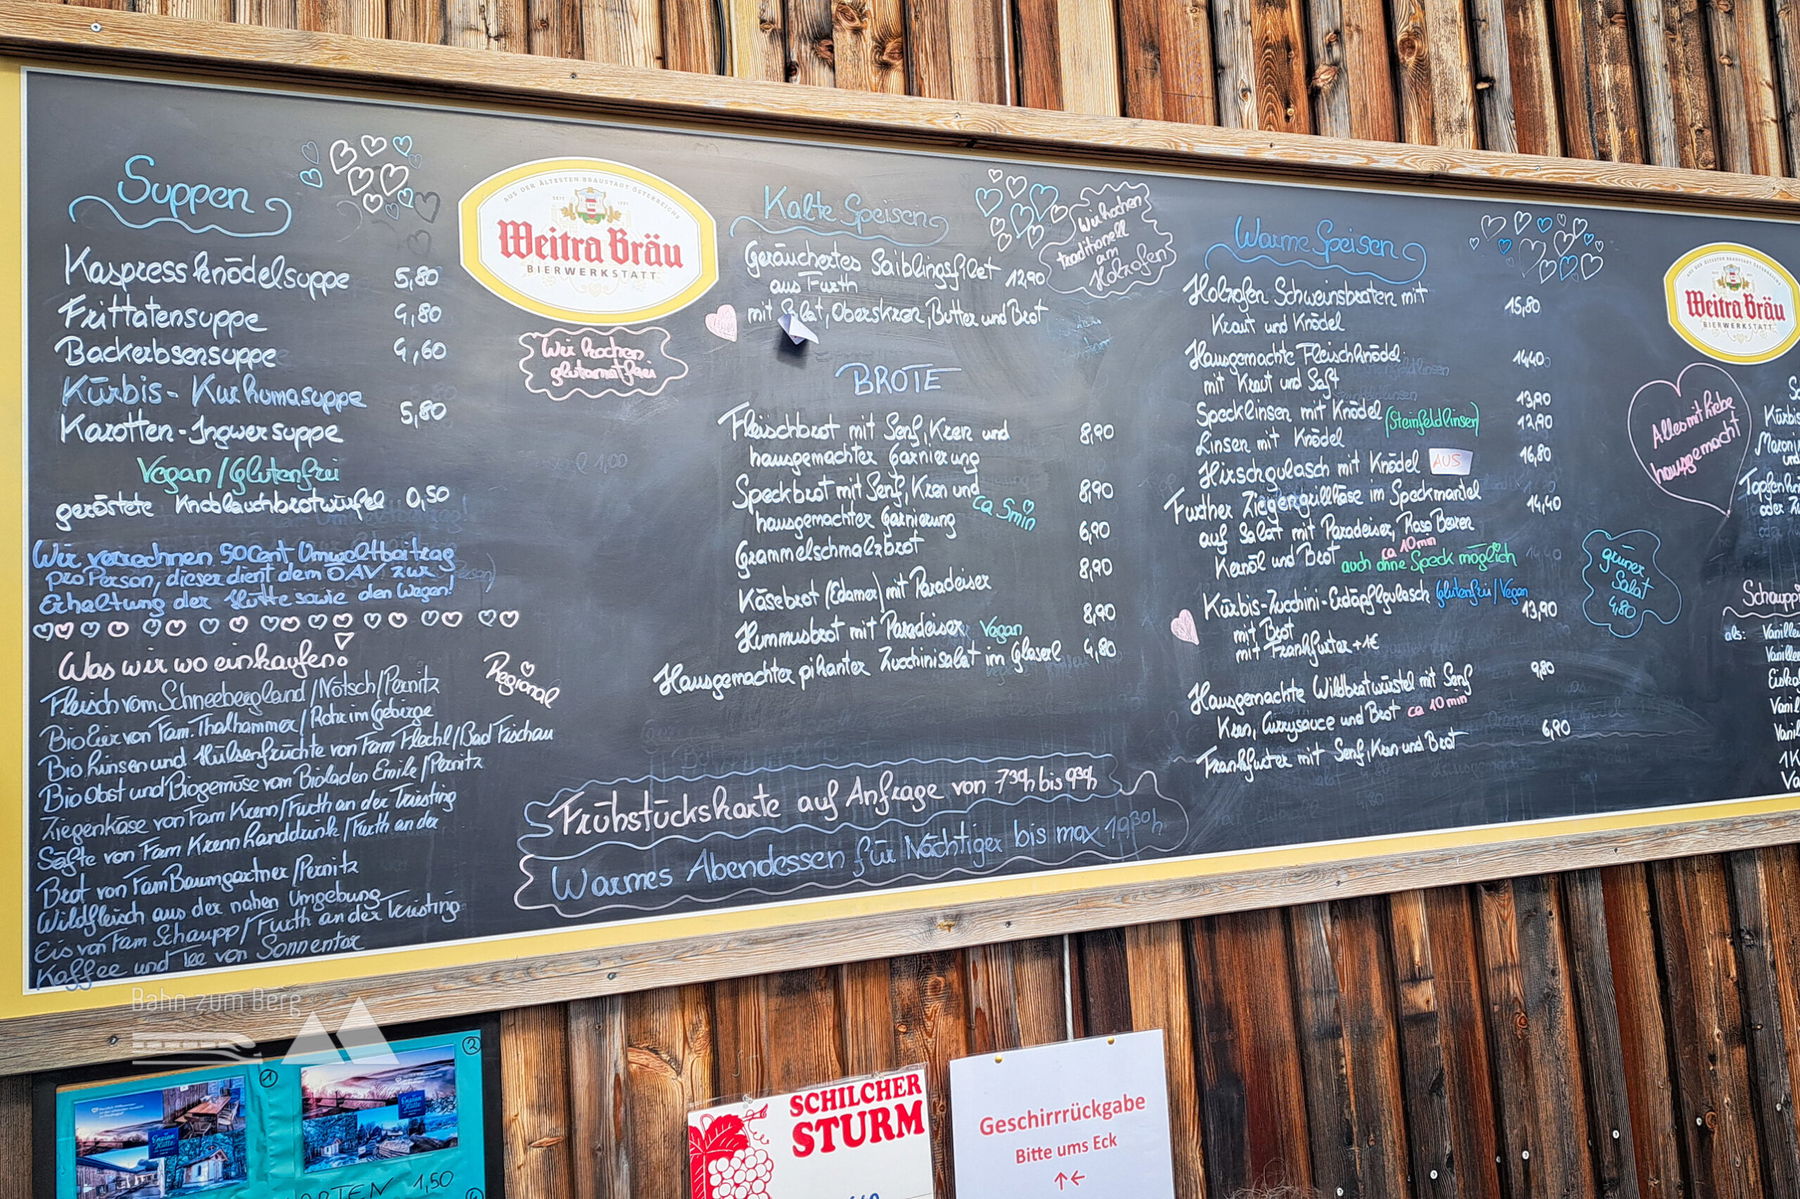 Suppen
Kaspressknödelsuppe 5,80
Frittatensuppe 4,80
Backerbsensuppe 4,60
Kürbis-Kurkumasuppe
Karotten-Ingwersuppe 5,80
Vegan/Glutenfrei
geröstete Knoblauchbrotwürfel 0,50
Wir verrechnen 50Cent Umweltbeitrag
pro Person, dieser dient dem ÖAV zur
Erhaltung der Hütte sowie den Wegen!
Was wir wo einkaufen!
Regional
Fleisch vom Schneebergland/Nötsch/Pernitz
Bio Eier von Fam. Thalhammer/Rohr im Gebirge
Bio Linsen und Hülsenfrüchte von Fam Flechl/Bad Fischau
Bio Obst und Biogemüse vom Bioladen Emile/Pernitz
Ziegenkäse von Fam Krenn/Furth an der Triesting
Säfte von Fam Krenn Landdrink/Furth an der
Brot von Fam Baumgartner/Pernitz
Wildfleisch aus der nahen Umgebung
Eis von Fam Schaupp/Furth an der Triesting
Kaffee und Tee von Sonnentor
AUS DER ÄLTESTEN BRAUSTADT ÖSTERREICHS
Weitra Bräu
BIERWERKSTATT
Wir kochen
glutamatfrei
Kalte Speisen
Geräuchertes Saiblingsfilet 12,90
aus Furth
mit Salat, Oberskren, Butter und Brot
Wir kochen
traditionell
am
Holzofen
BROTE
Fleischbrot mit Senf, Kren und 8,90
hausgemachter Garnierung
Speckbrot mit Senf, Kren und ca 5min 8,90
hausgemachter Garnierung
Grammelschmalzbrot 6,90
Käsebrot (Edamer) mit Paradeiser 8,90
Hummusbrot mit Paradeiser Vegan 8,90
Hausgemachter pikanter Zucchinisalat im Glaserl 4,80
Frühstückskarte auf Anfrage von 7³⁰h bis 9³⁰h
Warmes Abendessen für Nächtiger bis max 19³⁰h
Warme Speisen
Holzofen Schweinsbraten mit 15,80
Kraut und Knödel
Hausgemachte Fleischknödel 14,40
mit Kraut und Saft
Specklinsen mit Knödel (Steinfeldlinsen) 13,90
Linsen mit Knödel 12,90
Hirschgulasch mit Knödel AUS 16,80
Further Ziegengrillkäse im Speckmantel 14,40
auf Salat mit Paradeiser, Rosa Beeren
Kernöl und Brot ca 10min auch ohne Speck möglich
Kürbis-Zucchini-Erdäpflgulasch Glutenfrei/Vegan
mit Brot 13,90
mit Frankfurter +1€
Hausgemachte Wildbratwürstel mit Senf 9,80
Kren, Currysauce und Brot ca 10min
Frankfurter mit Senf, Kren und Brot 6,90
Weitra Bräu
BIERWERKSTATT
Alles mit Liebe
hausgemacht
grüner
Salat
4,80
Kürbis
Topfen
oder
Schaupp
als: Vanille
Vanille
Bahn zum Berg
1
2
1,50
SCHILCHER
STURM
Geschirrrückgabe
Bitte ums Eck
↑←